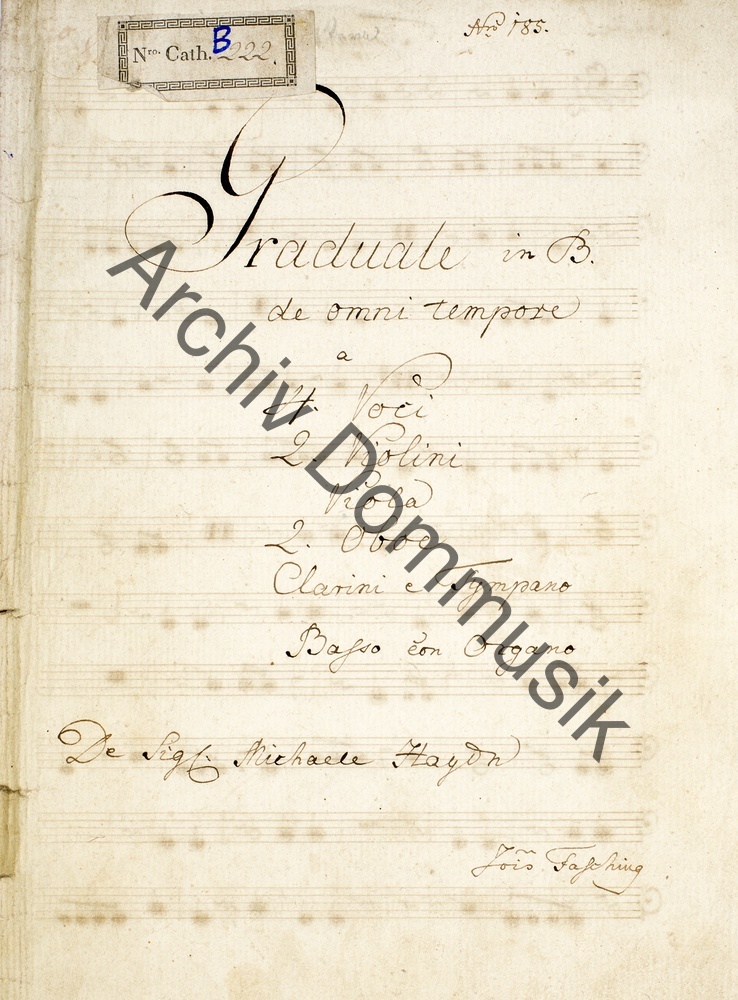 Nro. Cath. B 222.
Nro 185.
Graduale in B.
de omni tempore
a
4. Voci
2. Violini
Viola
2. Oboe
Clarini e Tympano
Basso con Organo
De Sigr. Michaele Haydn
Jois Fasching
Archiv Dommusik